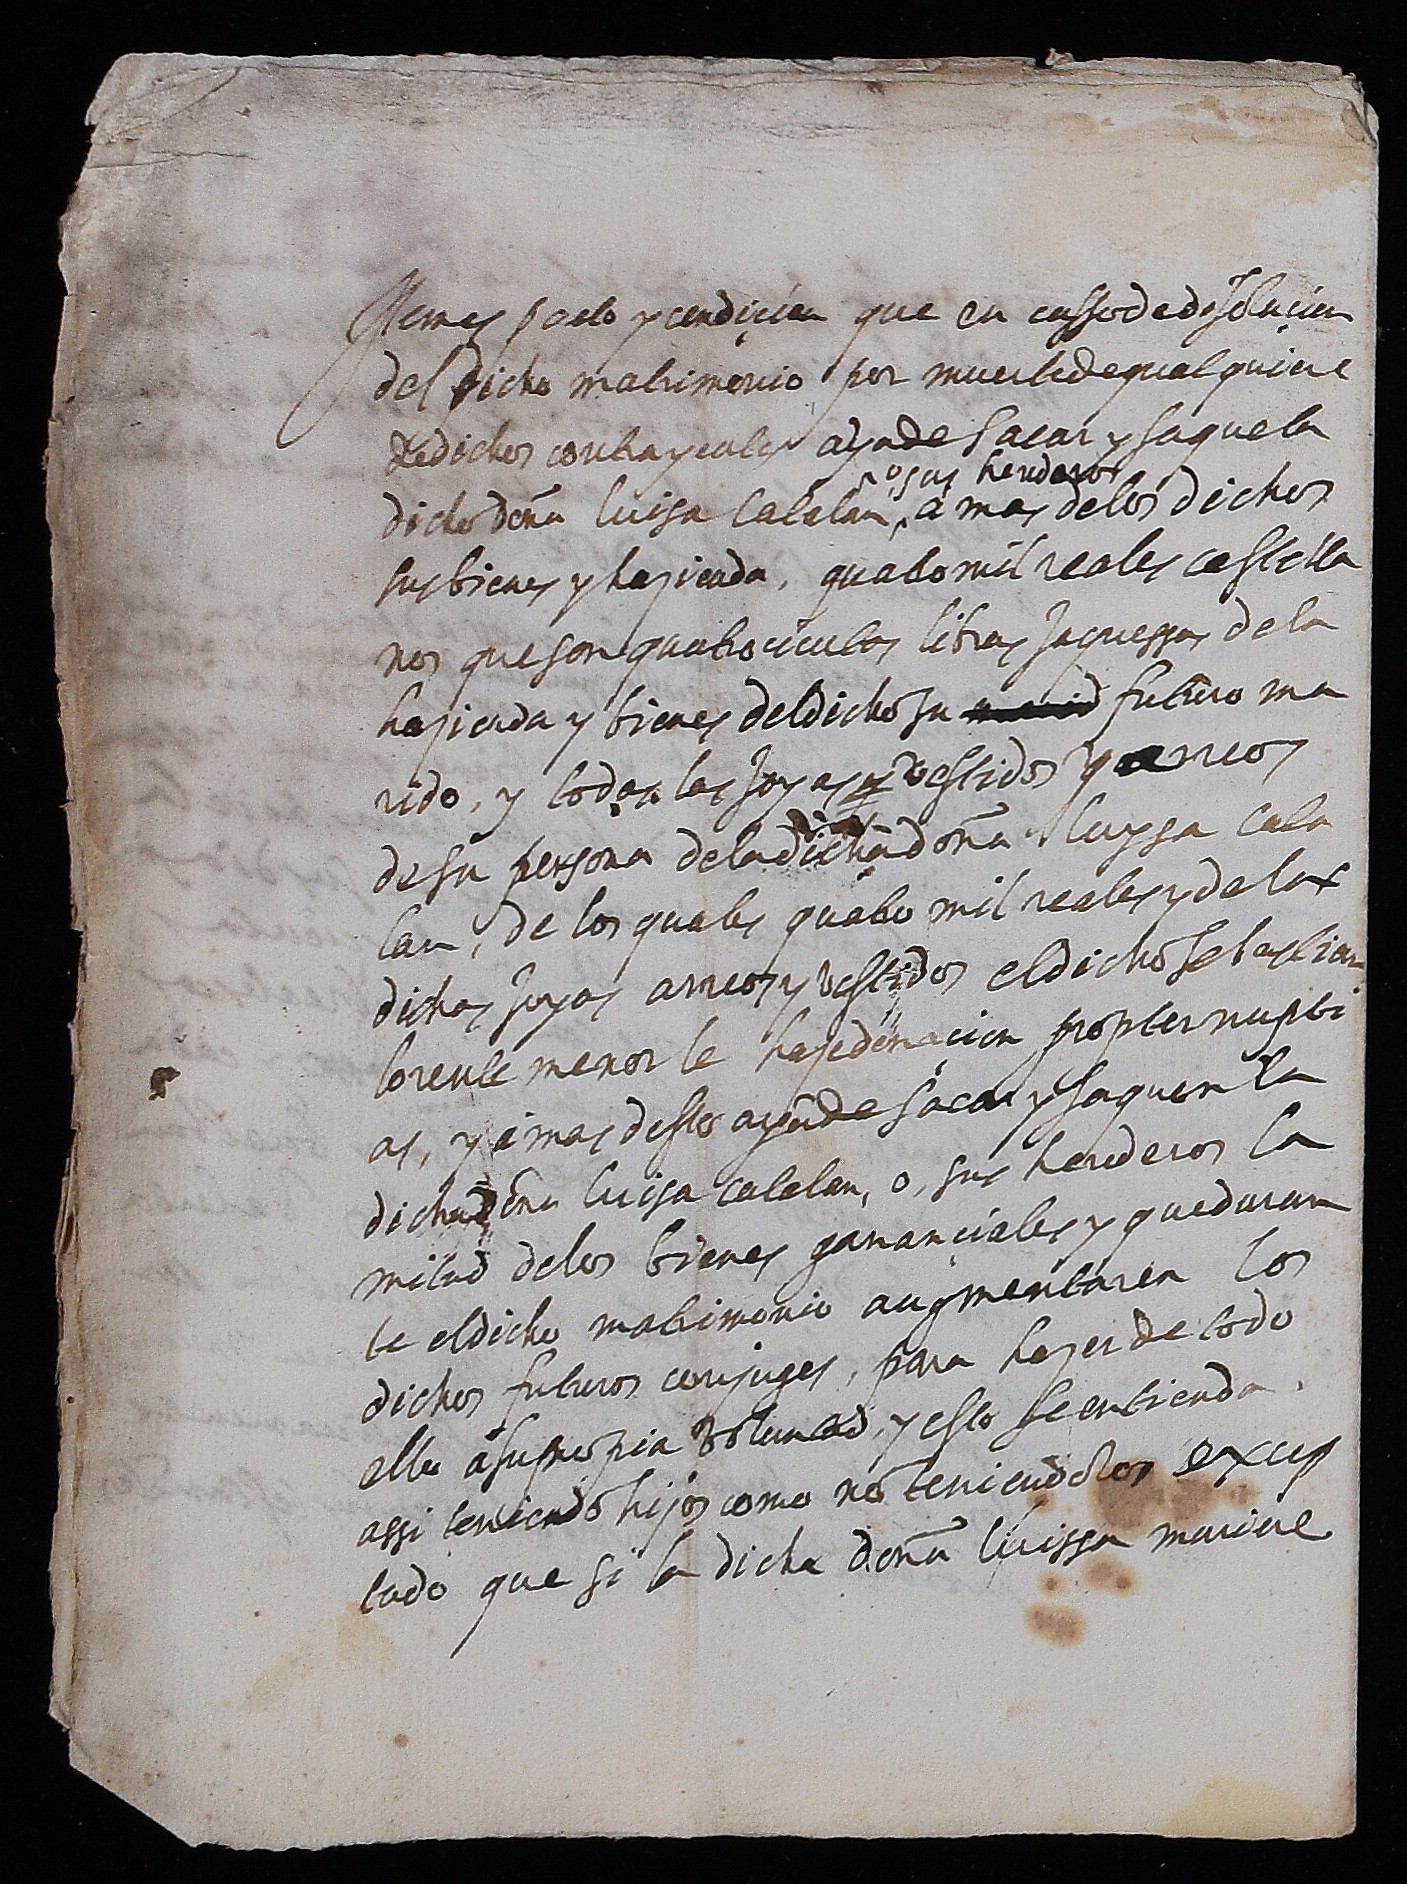 Item es pacto y condicion que en casso de disolucion
del dicho matrimonio por muerte de qualquiere
de dichos contrayentes aya de sacar y saque la
dicha doña luisa Catalan, o sus herederos a mas de los dichos
sus bienes y hazienda, quatro mil reales castella
nos que son quatrocientas libras Jaquessas de la
hazienda y bienes del dicho su futuro ma
rido, y todas las Joyas y vestidos y arreos
de su persona de la dicha doña luysa cata
lan, de los quales quatro mil reales y de las
dichas joyas arreos y vestidos el dicho Sebastian
lorente menor le haze donacion propter nupti
as, y a mas desto aya de sacar y saque la
dicha doña luisa catalan, o, sus herederos la
mitad de los bienes gananciales y que duran
te el dicho matrimonio augmentaren los
dichos futuros conjuges, para hazer de todo
ello a su propia voluntad, y esto se entienda,
assi teniendo hijos como no teniendolos excep
tado que si la dicha doña luissa muriere